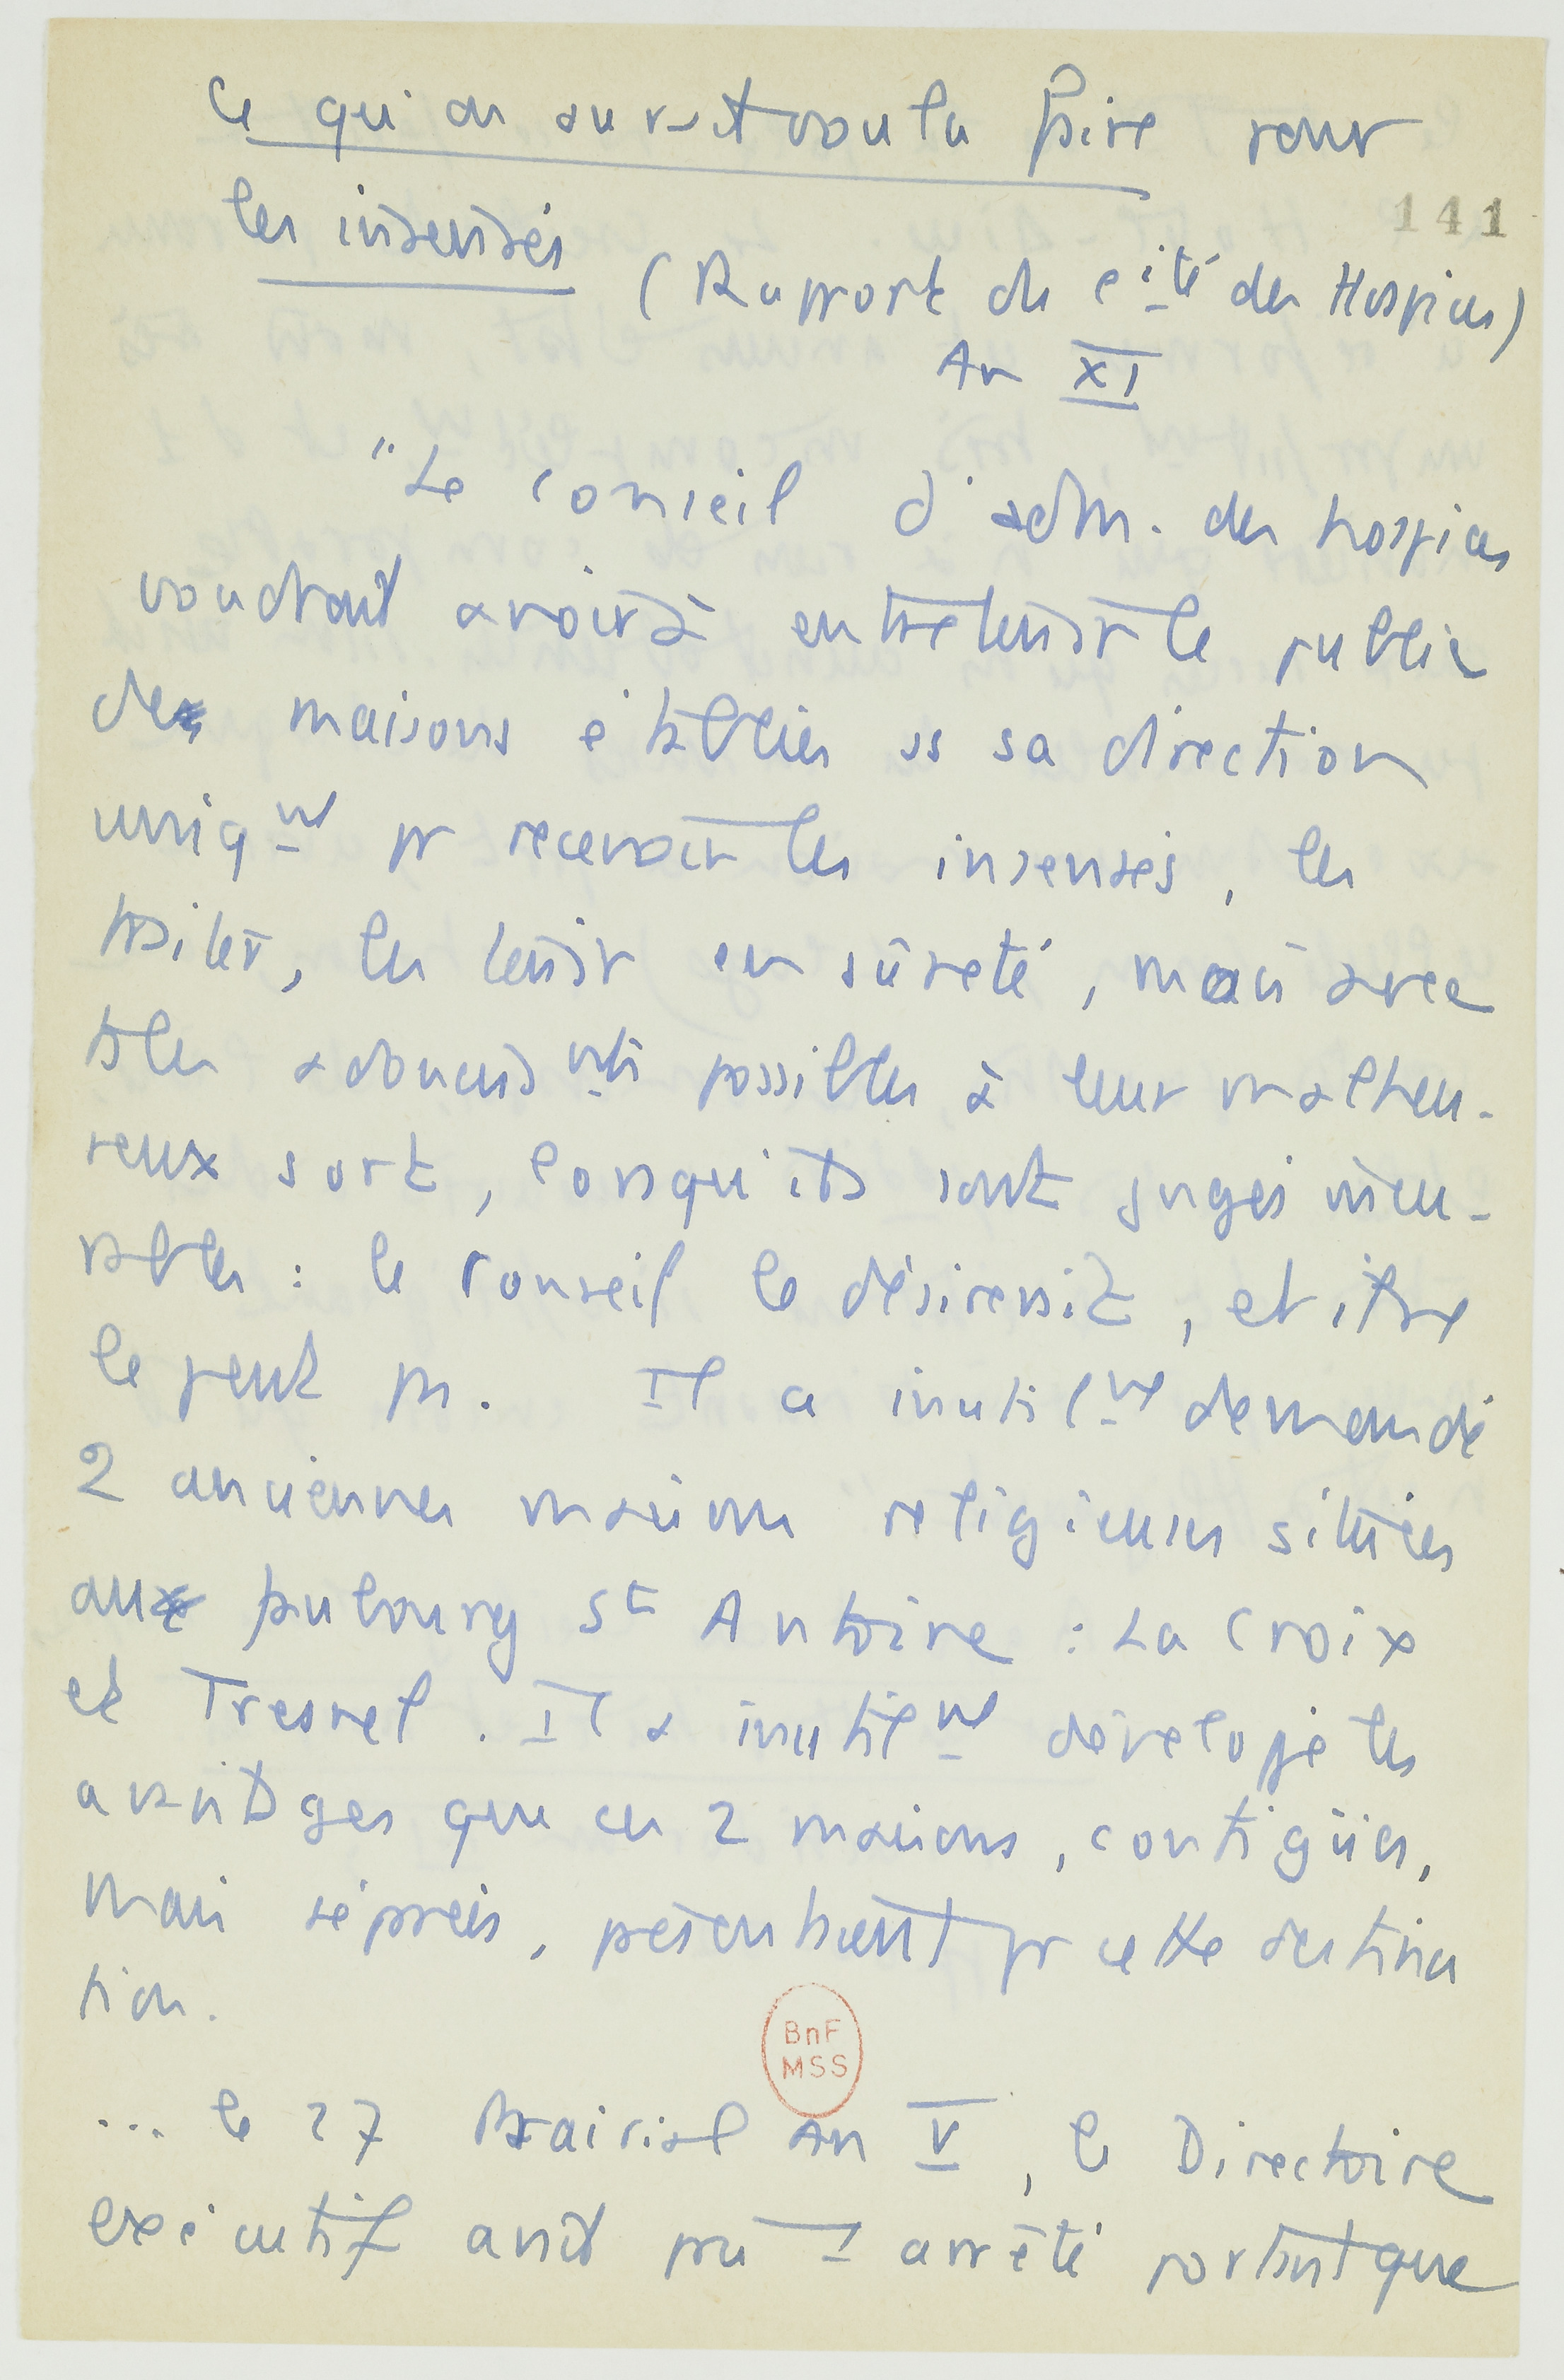 Ce qu'on aurait voulu faire pour
les insensés
141
(Rapport du cité des Hospices)
An XI
"Le conseil d'adm. des hospices
voudrait avoir à entretenir le public
de maisons établies ss sa direction
uniqnt pr recevoir les insensés, les
traiter, les tenir en sûreté, mais avec
ts les adouciss mts possibles à leur malheu-
reux sort, lorsqu'ils sont jugés incu-
rables : le Conseil le désirerait, et il ne
le peut pas. Il a inutilmt demandé
2 anciennes maisons religieuses situées
au faubourg St Antoine : La Croix
et Tresnel. Il a inutilmt développé les
avantages que ces 2 maisons, contigües,
mais séparées, présentaient pr cette destina
tion.
BnF
MSS
... le 27 Prairial An V, le Directoire
exécutif avait pris 1 arrêté portant que